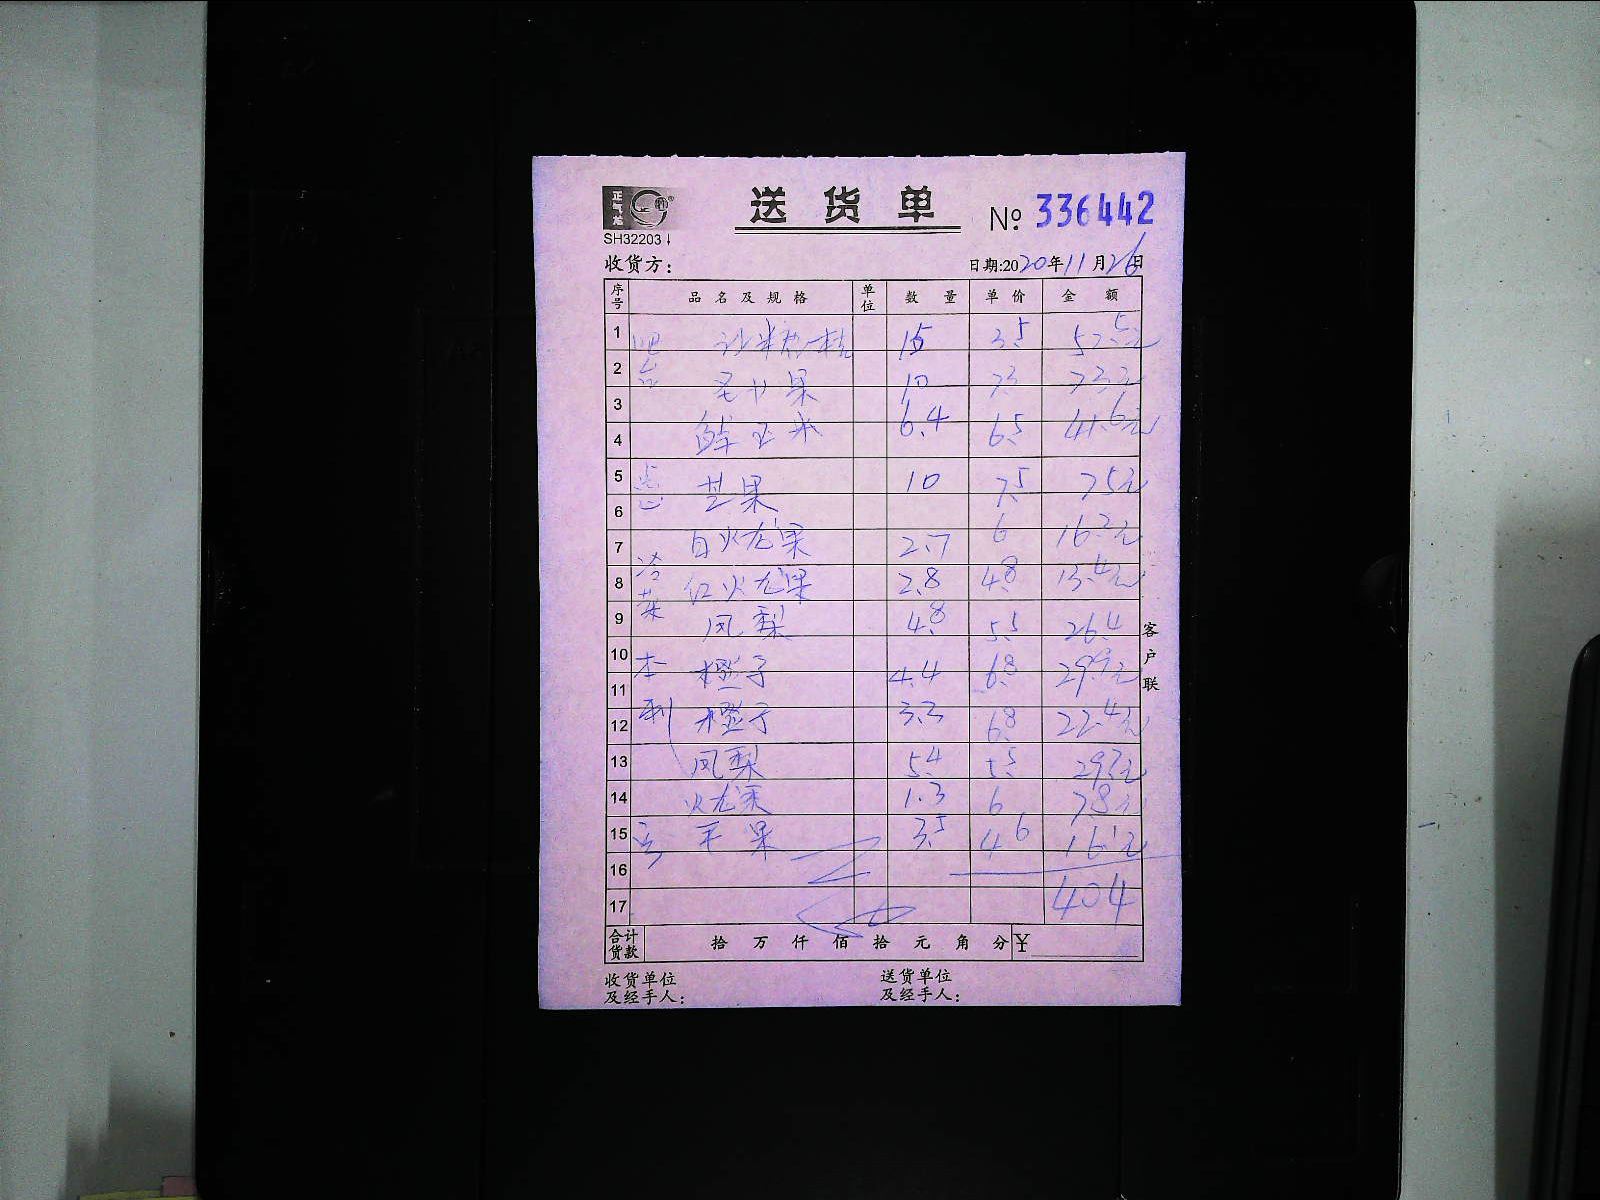 正气龙
送货单
№ 336442
SH32203
收货方：
日期:2020年11月26日
序号 品名及规格 单位 数量 单价 金额
1 吧 沙米桔 15 3.5 52.5元
2 台 圣女果 10 7.3 73元
3 鲜玉米 6.4 6.5 41.6元
4
5 点 芒果 10 7.5 75元
6 心
7 白火龙果 2.7 6 16.2元
8 冷菜 红火龙果 2.8 4.8 13.4元
9 凤梨 4.8 5.5 26.4
10 本 橙子 4.4 6.8 29.9元
11
12 利 橙子 3.3 6.8 22.4元
13 凤梨 5.4 5.5 29.7元
14 火龙果 1.3 6 7.8元
15 平果 3.5 4.6 16.1元
16
17 404
合计货款 拾 万 仟 佰 拾 元 角 分 ¥
客户联
收货单位 送货单位
及经手人： 及经手人：